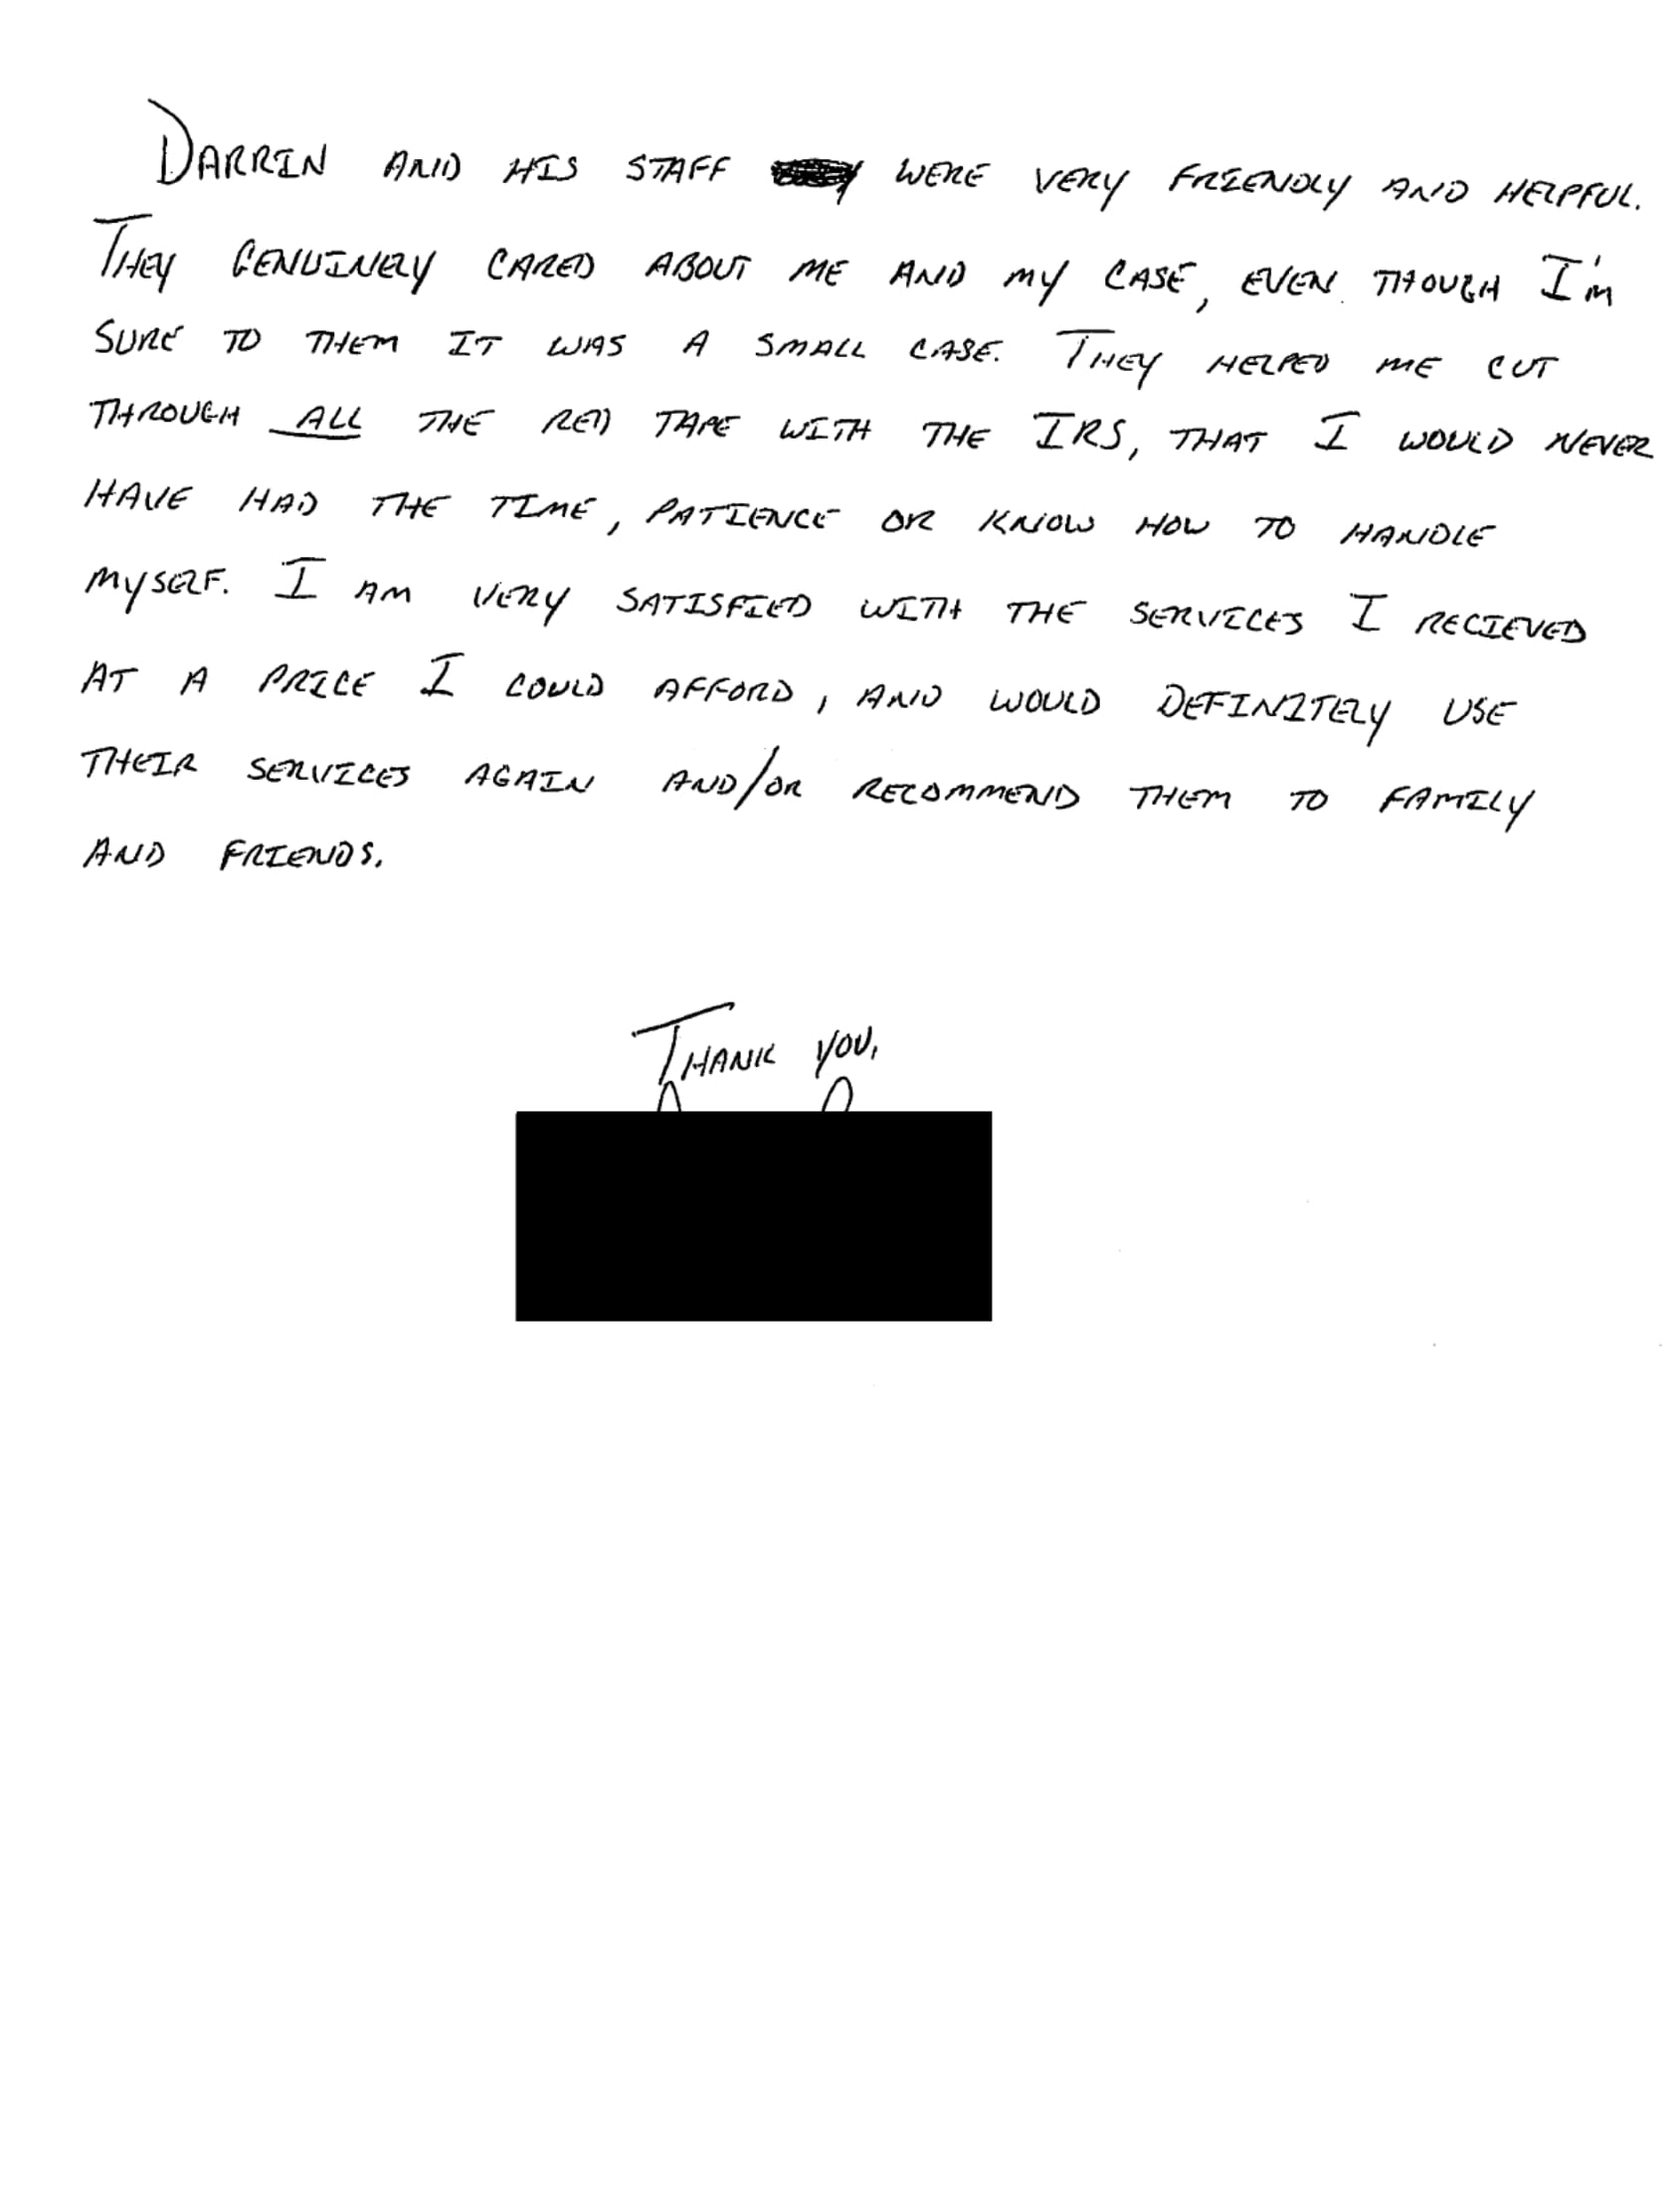 DARRIN AND HIS STAFF WERE VERY FRIENDLY AND HELPFUL.
THEY GENUINELY CARED ABOUT ME AND MY CASE, EVEN THOUGH I'M
SURE TO THEM IT WAS A SMALL CASE. THEY HELPED ME CUT
THROUGH ALL THE RED TAPE WITH THE IRS, THAT I WOULD NEVER
HAVE HAD THE TIME, PATIENCE OR KNOW HOW TO HANDLE
MYSELF. I AM VERY SATISFIED WITH THE SERVICES I RECIEVED
AT A PRICE I COULD AFFORD, AND WOULD DEFINITELY USE
THEIR SERVICES AGAIN AND/OR RECOMMEND THEM TO FAMILY
AND FRIENDS.
THANK YOU,